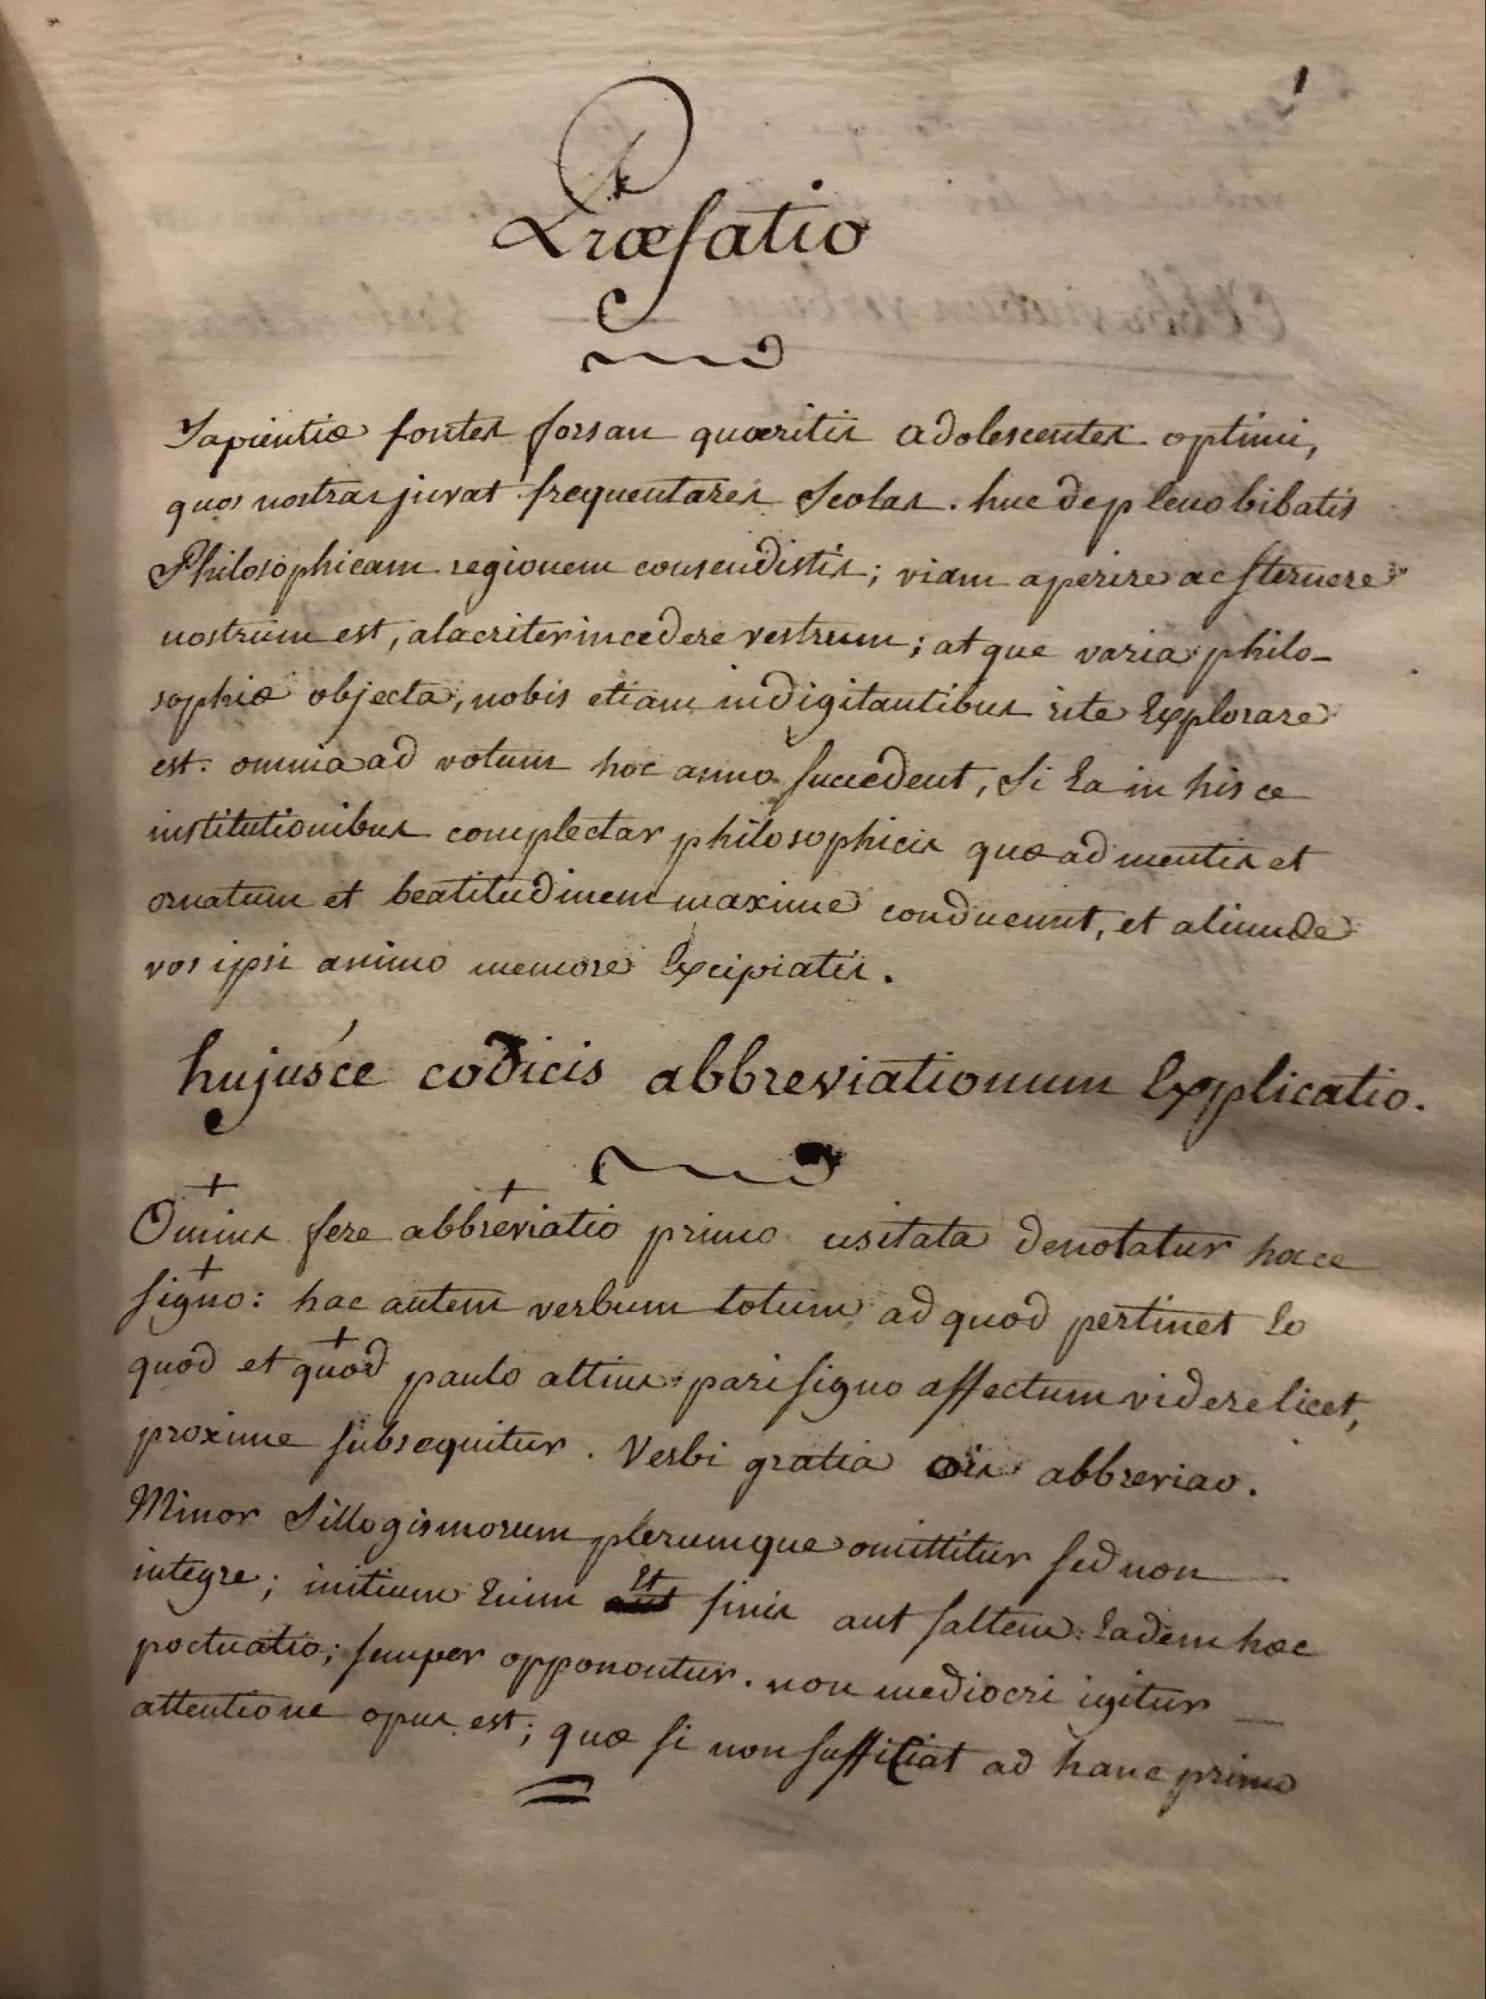 1
Præfatio
Sapientiæ fontes forsan quæritis adolescentes optimi,
quos nostras juvat frequentares Scolas. huc de pleno bibatis
Philosophicam regionem conscendistis; viam aperire ac sternere
nostrum est, alacriter incedere vestrum; atque varia philo-
sophiæ objecta, nobis etiam indigitantibus rite explorare
est. omnia ad votum hoc anno succedent, si ea in hisce
institutionibus complectar philosophicis quæ ad mentis et
ornatum et beatitudinem maxime conducunt, et aliunde
vos ipsi animo memore excipiatis.
hujusce codicis abbreviationum explicatio.
Omnis fere abbreviatio primo usitata denotatur hocce
signo: hac autem verbum totum ad quod pertinet eo
quod et quod paulo altius pari signo affectum videre licet,
proxime subsequitur. Verbi gratia ois abbreviao.
Minor Sillogismorum plerumque omittitur sed non
integre; initium enim et finis aut saltem eadem hæc
poctuatio; semper opponontur. non mediocri igitur
attentione opus est; quæ si non sufficiat ad hanc primo